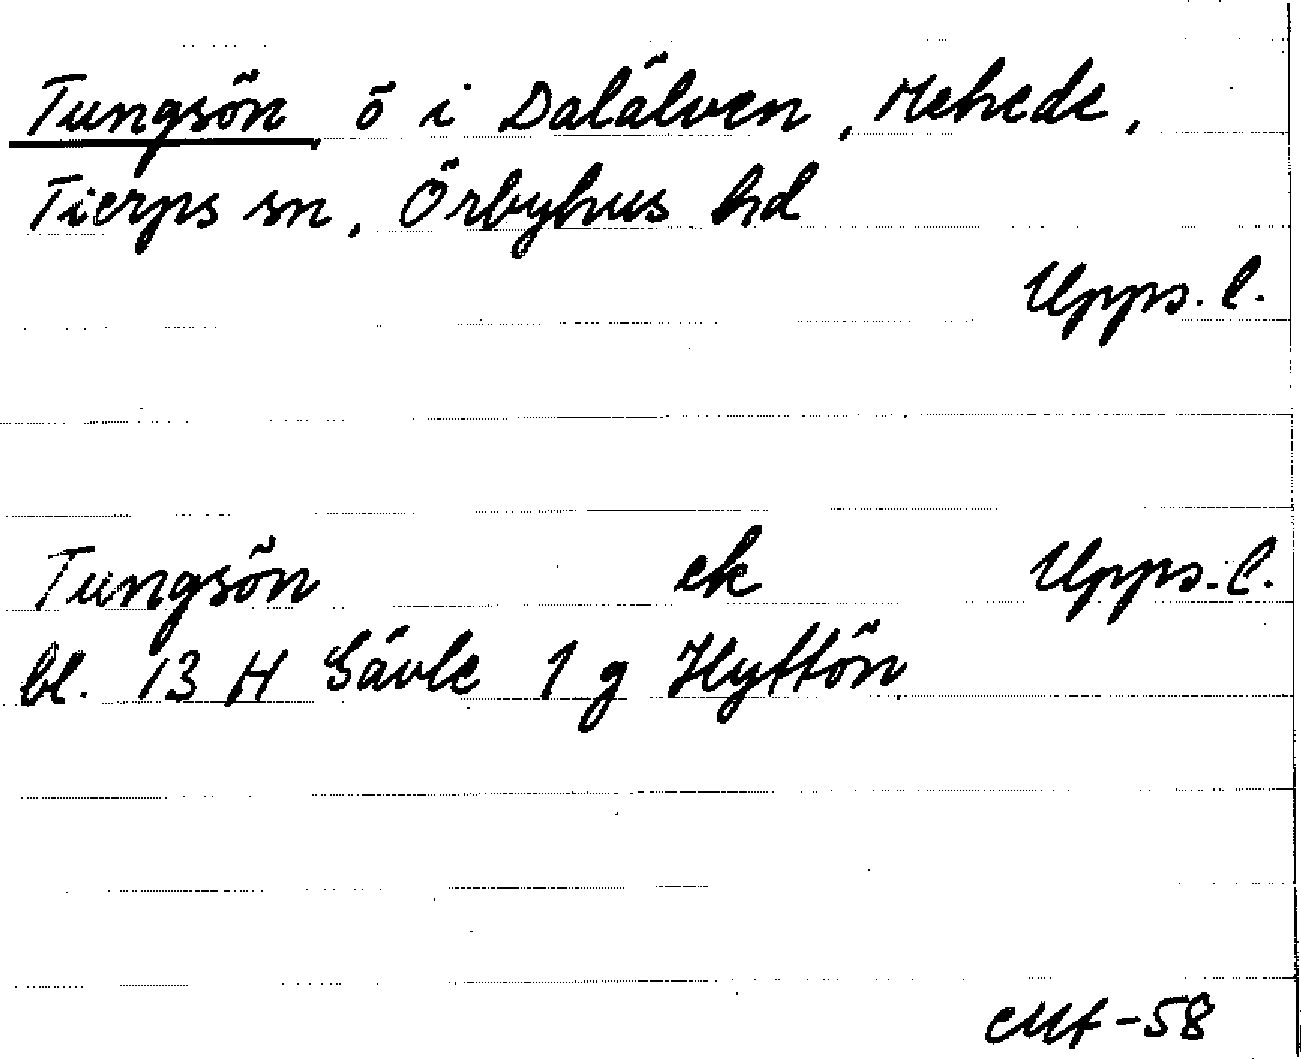 Tungsön, ö i Dalälven, Mehede,
Tierps sn, Örbyhus hd
Upps. l.
Tungsön ek Upps. l.
bl. 13 H Gävle 1 g Hyttön